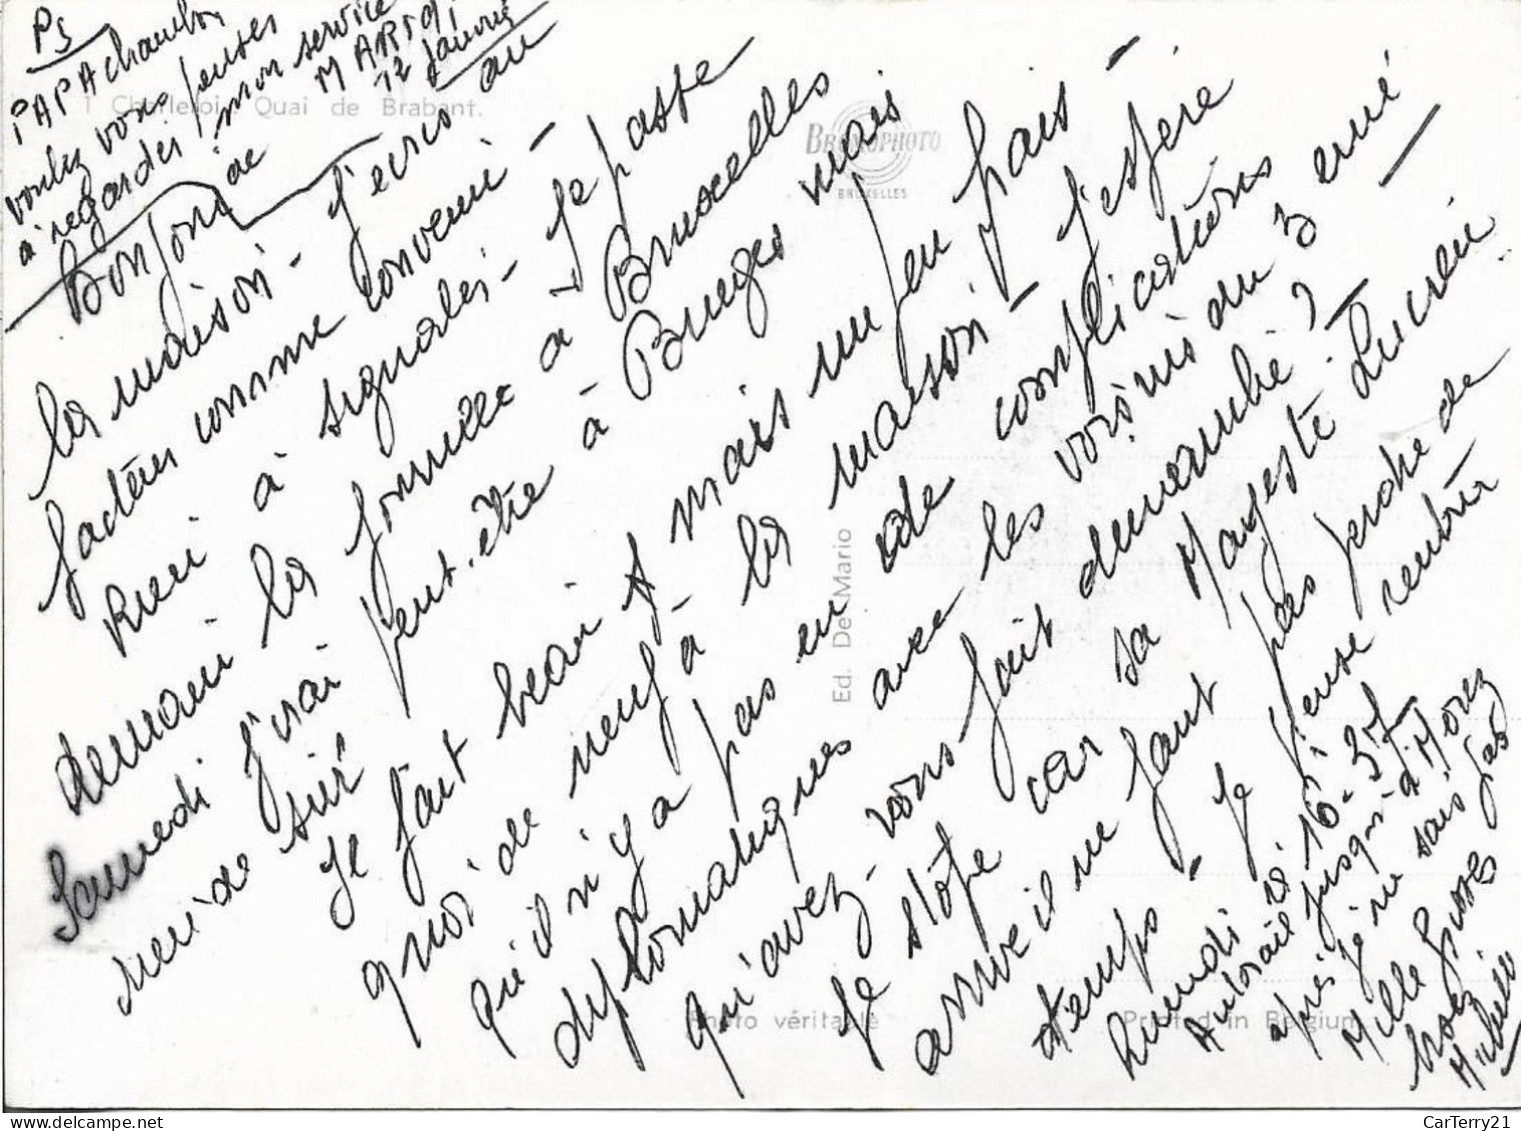 PS
PAPA chambon
voulez vous penser
à regarder mon service
de MARIGI
12 Janvier
1 Charleroi Quai de Brabant.
BROMOPHOTO
BRUXELLES
Bonjour
la maison - J'écris au
facteur comme convenu -
Rien à signaler - Je passe
demain la journée à Bruxelles
Samedi j'irai peut-être à Bruges mais
rien de sûr
Il fait beau mais un peu frais -
quoi de neuf à la maison - J'espère
qu'il n'y a pas eu de complications
diplomatiques avec les voisins du 3 ème
qu'avez-vous fait dimanche ?
Je stope car sa Majesté Lucien
arrive il ne faut pas perdre de
temps - Je pense rentrer
Lundi à 16-37
Autorail jusqu'à Morez
après je ne sais pas
Mille Grosses
bises
Michel
Ed. De Mario
Photo véritable
Printed in Belgium
CarTerry21